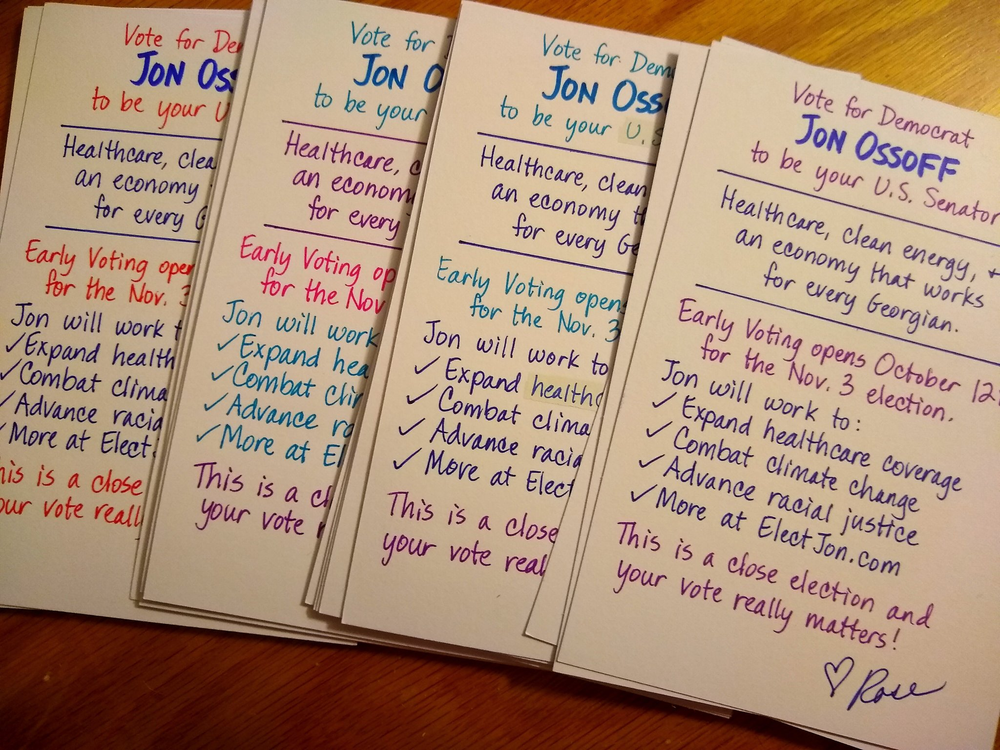 Vote for Der
JON OSS
to be your U
Healthcare, clea
an economy
for every G
Early Voting open
for the Nov. 3
Jon will work t
✓Expand health
✓Combat clima
✓Advance racia
✓More at Elect
his is a close
our vote reall
Vote for
JON O
to be your
Healthcare, c
an econom
for every
Early Voting op
for the Nov
Jon will work
✓Expand hea
✓Combat clim
✓Advance ra
✓More at El
This is a cl
your vote r
Vote for Dem
JON OSS
to be your U.S
Healthcare, clean
an economy th
for every Ge
Early Voting opens
for the Nov. 3
Jon will work to
✓ Expand healthc
✓ Combat clima
✓ Advance racia
✓ More at Elect
This is a close
your vote real
Vote for Democrat
JON OSSOFF
to be your U.S. Senator
Healthcare, clean energy, +
an economy that works
for every Georgian.
Early Voting opens October 12
for the Nov. 3 election.
Jon will work to:
✓ Expand healthcare coverage
✓ Combat climate change
✓ Advance racial justice
✓ More at ElectJon.com
This is a close election and
your vote really matters!
♡ Rose